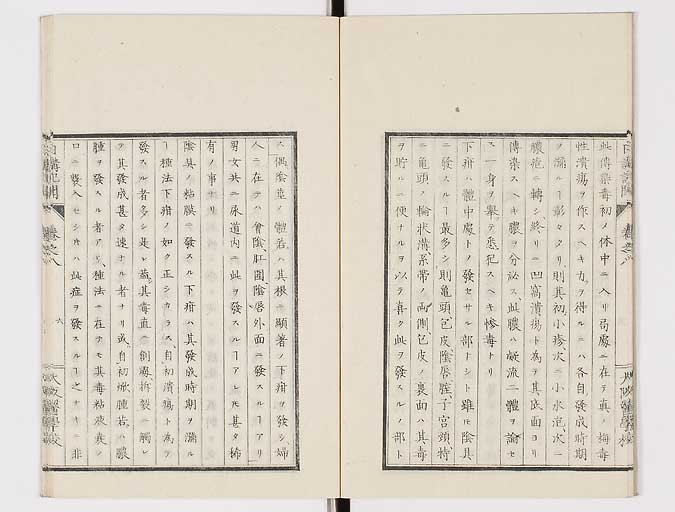 此傳染毒初メ体中ニ入リ局處ニ在テ真ノ梅毒
性潰瘍ヲ作スヘキ力ヲ得ルニハ各自發成時期
ノ漏ルヿ彰々タリ則其初小疹次ニ小水泡次ニ
膿疱ニ轉シ終リニ凹窩潰瘍ト為ヲ其底面ヨリ
傳染スヘキ膿ヲ分泌ス此膿ハ凝流二體ヲ論セ
ス一身ヲ擧テ悉犯スヘキ惨毒ナリ
下疳ハ體中處トノ發セサル部ナシト雖モ陰具
ニ發スルヿ最多シ則亀頭包皮陰唇腟子宮頸特
ニ亀頭ノ輪状溝系帯ノ両側包皮ノ裏面ハ其毒
ヲ貯ルニ便ナルヲ以テ喜ク此ヲ發スルノ部ト
ス偶陰莖ノ體若ハ其根ニ顯著ノ下疳ヲ發シ婦
人ニ在テハ會陰肛圍陰唇外面ニ發スルヿアリ
男女共ニ尿道内ニ此ヲ發スルヿアレ𪜈甚タ稀
有ノ事ナリ
陰具ノ粘膜ニ發スル下疳ハ其發成時期ヲ漏ル
ヿ種法下疳ノ如ク正シカラス自初潰瘍ト為テ
發スル者多シ是レ蓋其毒直ニ創處拆裂ニ觸レ
テ其發成甚タ速ナル者ナリ或自初焮腫若ハ膿
腫ヲ發スル者アリ種法ニ在テモ其毒粘液囊ノ
口ニ襲入セシキハ此症ヲ發スルヿ之ナキニ非
卷之八
六
大阪醫學校
卷之八
大阪醫學校